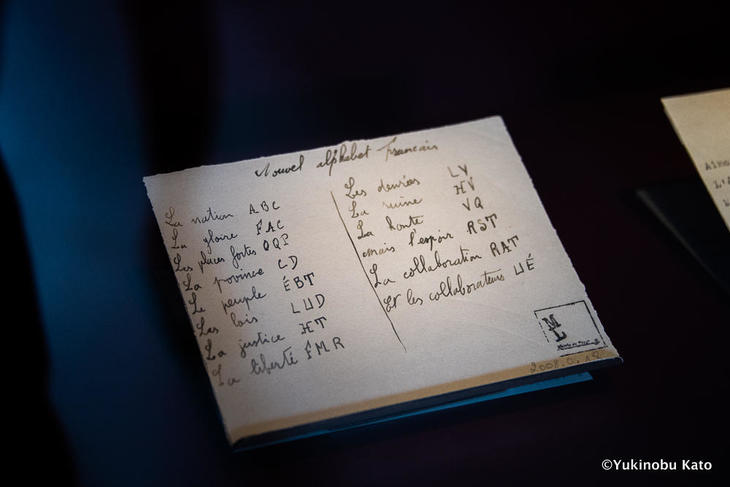 Nouvel alphabet Francais
La nation ABC
La gloire FAC
Les places fortes OQP
La province CD
Le peuple ÉBT
Les lois LUD
La justice HT
La liberté FMR
Les denrées LV
La ruine HV
La honte VQ
mais l'espoir RST
La collaboration RAT
Et les collaborateurs UÉ
ML
2008.0.
©Yukinobu Kato